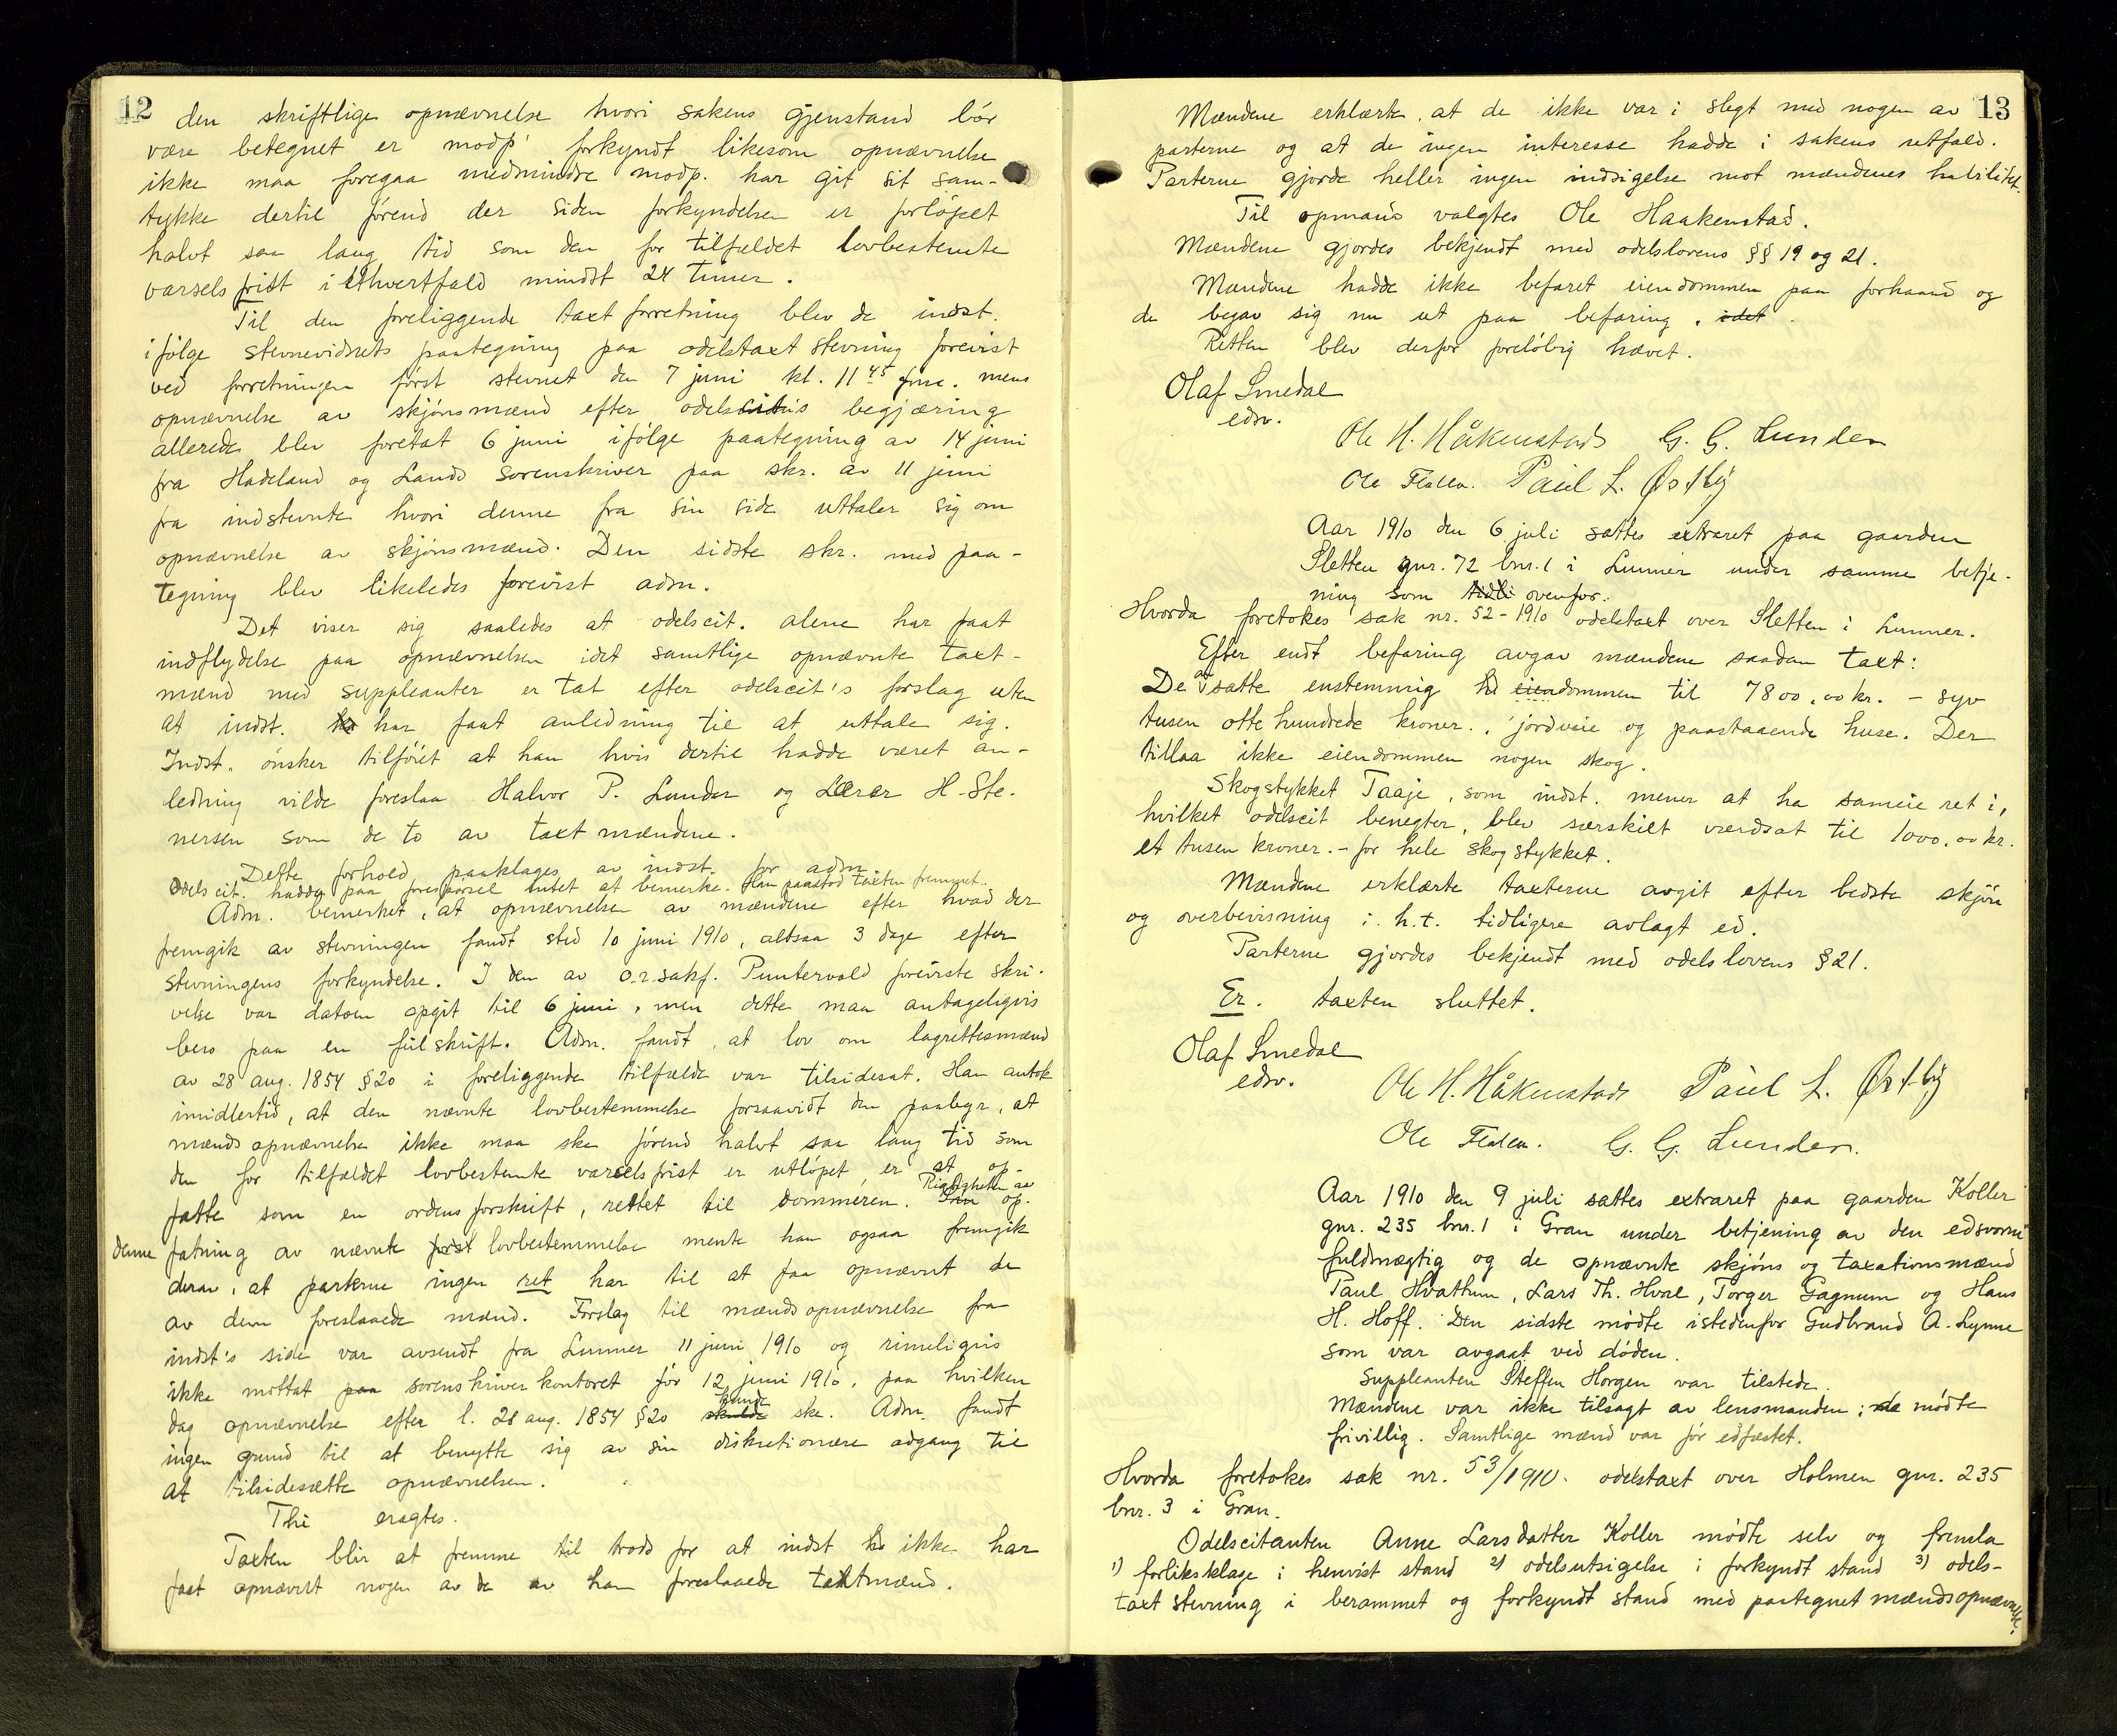 12
den skriftlige opnævnelse hvori sakens gjenstand bör
være betegnet er modp' forkyndt likesom opnævnelse
ikke maa foregaa medmindre modp. har git sit sam-
tykke dertil förend der siden forkyndelsen er forlöpet
halvt saa lang tid som den for tilfældet lovbestemte
varselsfrist i ethvertfald mindst 24 timer.
Til den foreliggende taxtforretning blev de indst.
ifölge stevnevidnets paategning paa odelstaxtstevning forevist
ved forretningen först stevnet den 7 juni kl. 11 45 fm. mens
opnævnelse av skjönsmænd efter odelscit's begjæring
allerede blev foretat 6 juni ifölge paategning av 14 juni
fra Hadeland og Lands sorenskriver paa skr. av 11 juni
fra indstevnte hvori denne fra sin side uttaler sig om
opnævnelse av skjönsmænd. Den sidste skr. med paa-
tegning blev likeledes forevist adm.
Det viser sig saaledes at odelscit. alene har faat
indflydelse paa opnævnelsen idet samtlige opnævnte taxt-
mænd med suppleanter er tat efter odelscit's forslag uten
at indst. har faat anledning til at uttale sig.
Indst. önsker tilföiet at han hvis dertil hadde været an-
ledning vilde foreslaa Halvor P. Lunder og Lærer H. Ste-
nersen som de to av taxtmændene.
Dette forhold paaklages av indst. for adm.
Odelscit. hadde paa forespörsel intet at bemerke. Han paastod taxten fremmet.
Adm. bemerket, at opnævnelsen av mændene efter hvad der
fremgik av stevningen fandt sted 10 juni 1910, altsaa 3 dage efter
stevningens forkyndelse. I den av o.r.sakf. Puntervold foreviste skri-
velse var datoen opgit til 6 juni, men dette maa antageligvis
bero paa en feilskrift. Adm. fandt, at lov om lagrettesmænd
av 28 aug. 1854 §20 i foreliggende tilfælde var tilsidesat. Han antok
imidlertid, at den nævnte lovbestemmelse forsaavidt den paabyr, at
mændsopnævnelse ikke maa ske förend halvt saa lang tid som
den for tilfældet lovbestemte varselsfrist er utlöpet, er at op-
fatte som en ordensforskrift, rettet til dommeren. Rigtigheten av op-
denne fatning av nævnte lovbestemmelse mente han ogsaa fremgik
derav, at parterne ingen ret har til at faa opnævnt de
av dem foreslaaede mænd. Forslag til mændsopnævnelse fra
indst's side var avsendt fra Lunner 11 juni 1910 og rimeligvis
ikke mottat paa sorenskriverkontoret för 12 juni 1910, paa hvilken
dag opnævnelse efter l. 28 aug. 1854 §20 kunde ske. Adm. fandt
ingen grund til at benytte sig av sin diskretionære adgang til
at tilsidesætte opnævnelsen.
Thi eragtes.
Taxten blir at fremme til trods for at indst ikke har
faat opnævnt nogen av de av ham foreslaaede taxtmænd.
13
Mændene erklærte at de ikke var i slegt med nogen av
parterne og at de ingen interesse hadde i sakens utfald.
Parterne gjorde heller ingen indsigelse mot mændenes habilitet.
Til opmand valgtes Ole Haakenstad.
Mændene gjordes bekjendt med odelslovens §§ 19 og 21.
Mændene hadde ikke befaret eiendommen paa forhaand og
de begav sig nu ut paa befaring. idet
Retten blev derfor forelöbig hævet.
Olaf Smedal
edsv.
Ole H. Håkenstad G. G. Lunder
Ole Flaten. Paul L. Østby
Aar 1910 den 6 juli sattes extraret paa gaarden
Sletten gnr. 72 bnr. 1 i Lunner under samme betje-
ning som ovenfor.
Hvorda foretokes sak nr. 52-1910 odelstaxt over Sletten i Lunner.
Efter endt befaring avgav mændene saadan taxt:
De ansatte enstemmig eiendommen til 7800,00 kr. - syv
tusen otte hundrede kroner. jordveie og paastaaende huse. Der
tillaa ikke eiendommen nogen skog.
Skogstykket Taaje, som indst. mener at ha sameieret i,
hvilket odelscit benegter, blev særskilt verdsat til 1000,00 kr.
et tusen kroner. - for hele skogstykket.
Mændene erklærte taxterne avgit efter bedste skjön
og overbevisning i. h. t. tidligere avlagt ed.
Parterne gjordes bekjendt med odelslovens §21.
Er. taxten sluttet.
Olaf Smedal
edsv.
Ole H. Håkenstad Paul L. Østby
Ole Flaten. G. G. Lunder.
Aar 1910 den 9 juli sattes extraret paa gaarden Koller
gnr. 235 bnr. 1 i Gran under betjening av den edsvorne
fuldmægtig og de opnævnte skjöns og taxationsmænd
Paul Hvattum, Lars Th. Hval, Torger Gagnum og Hans
H. Hoff. Den sidste mödte istedenfor Gudbrand A. Lynne
som var avgaat ved döden.
Suppleanten Steffen Horgen var tilstede.
Mændene var ikke tilsagt av lensmanden; de mödte
frivillig. Samtlige mænd var för edfæstet.
Hvorda foretokes sak nr. 53/1910. odelstaxt over Holmen gnr. 235
bnr. 3 i Gran.
Odelscitanten Anne Larsdatter Koller mödte selv og fremla
1) forliksklage i henvist stand 2) odelsutsigelse i forkyndt stand 3) odels-
taxtstevning i berammet og forkyndt stand med paategnet mændsopnævnelse.